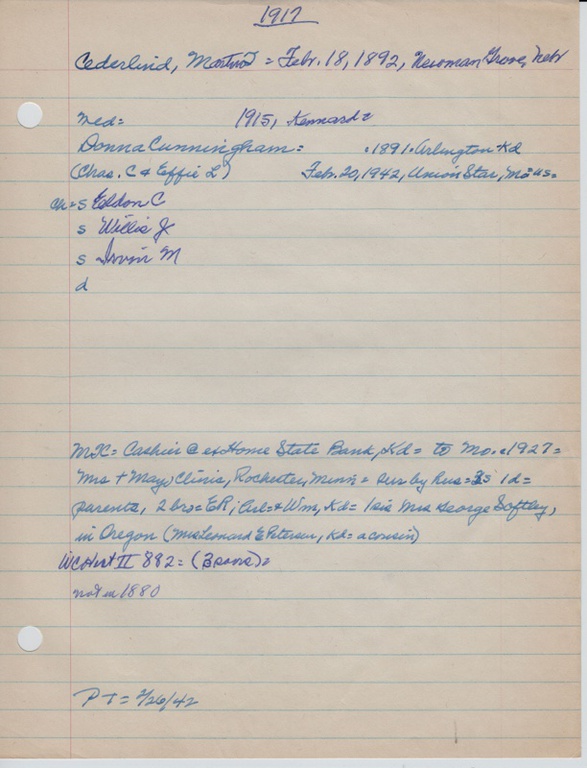 1917
Cederlind, Martin T = Febr. 18, 1892, Newman Grove, Nebr
Med = 1915, Kennard =
Donna Cunningham = . 1891. Arlington Kd
(Chas. C & Effie L) Feb. 20, 1942, Union Star, Mo = us =
ch = s Eldon C
s Willis Jr
s Irvin M
d
MTC = Cashier @ ex Home State Bank, Kd = to Mo. c1927 =
Mrs + Mayo Clinic, Rochester, Minn = surv by hus = 3s 1d =
parents, 2 bro = ER; Arl = + Wm, Kd = 1 sis Mrs George Softley,
in Oregon (Mrs Leonard E Petersen, Kd = a cousin)
WC Hist II 882 = =
not in 1880
PT = 2/26/42